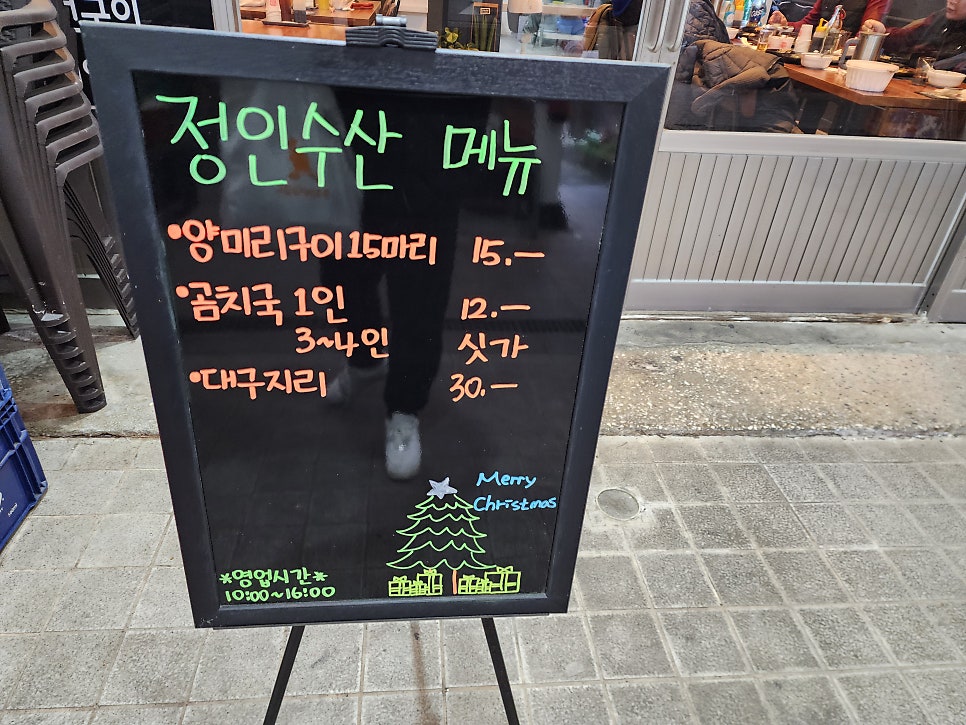 정인수산 메뉴
•양미리구이 15마리 15.—
•곰치국 1인 12.—
3~4인 싯가
•대구지리 30.—
Merry
Christmas
*영업시간*
10:00~16:00